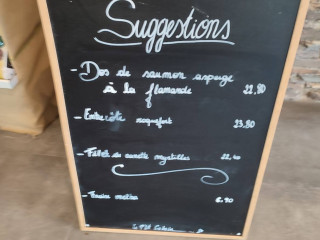 Suggestions
- Dos de saumon asperge
à la flamande 22,80
- Entrecôte roquefort 23.80
- Filet de canette myrtilles 22,40
- Fraises melba